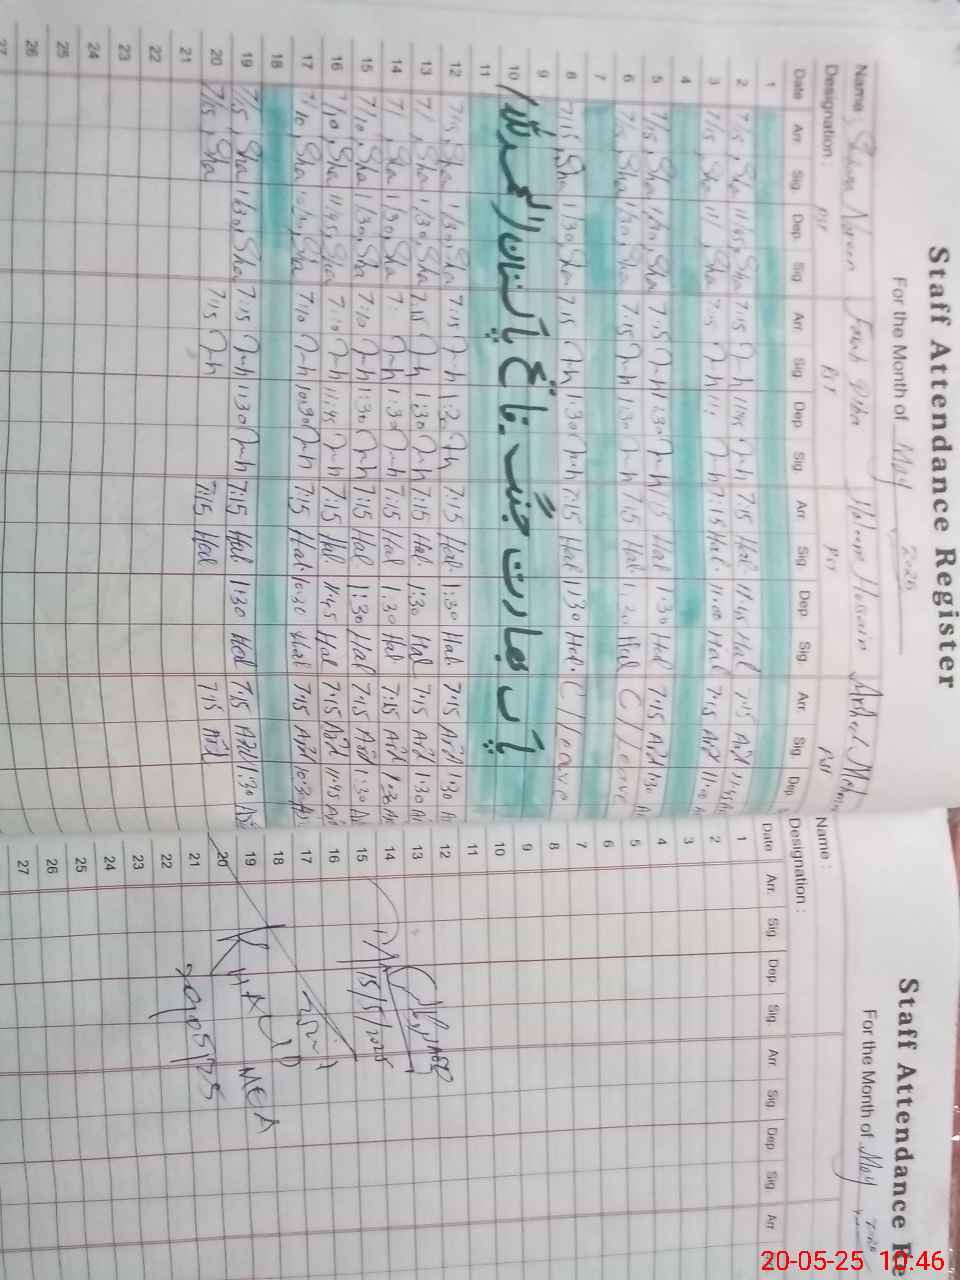 Staff Attendance Register
For the Month of May 2025
Name :
Designation : PST PST PST
Date Arr. Sig. Dep. Sig. Arr. Sig. Dep. Sig. Arr. Sig. Dep. Sig. Arr. Sig. Dep.
1
2 7/15 Sha 11/45 Sha 7:15 11:45 7:15 Hal 11:45 Hal 7:15 Ard 11:45
3 7/15 Sha 11/ Sha 7:15 11: 7:15 Hal 11:00 Hal 7:15 Ard 11:00
4
5 7/15 Sha 1/30 Sha 7:15 1:30 7:15 Hal 1:30 Hal 7:15 Ard 1:30
6 7/15 Sha 1/30 Sha 7:15 1:30 7:15 Hal 1:30 Hal C/Leave
7
8 7/15 Sha 1/30 Sha 7:15 1:30 7:15 Hal 1:30 Hal C/Leave
9
10 پاک بھارت جنگ۔ فاتح پاکستان / الحمدللہ /
11
12 7/15 Sha 1/30 Sha 7:15 7:15 Hal 1:30 Hal 7:15 Ard 1:30
13 7/ Sha 1/30 Sha 7:15 1:30 7:15 Hal 1:30 Hal 7:15 Ard 1:30
14 7/ Sha 1/30 Sha 7: 1:30 7:15 Hal 1:30 Hal 7:15 Ard 1:30
15 7/10 Sha 1/30 Sha 7:10 1:30 7:15 Hal 1:30 Hal 7:15 Ard 1:30
16 7/10 Sha 11/45 Sha 7:10 11:45 7:15 Hal 11:45 Hal 7:15 Ard 11:45
17 7/10 Sha 10/30 Sha 7:10 10:30 7:15 Hal 10:30 Hal 7:15 Ard 10:30
18
19 7/15 Sha 1/30 Sha 7:15 1:30 7:15 Hal 1:30 Hal 7:15 Ard 1:30
20 7/15 Sha 7:15 7:15 Hal 7:15 Ard
21
22
23
24
25
26
27
Staff Attendance Re
For the Month of May 2025
Name :
Designation :
Date Arr. Sig. Dep. Sig. Arr. Sig. Dep. Sig. Arr.
1
2
3
4
5
6
7
8
9
10
11
12
13
14
15 15/5/2025
16
17
18
19 MEA
20
21 20/05/25
22
23
24
25
26
27
20-05-25 10:46